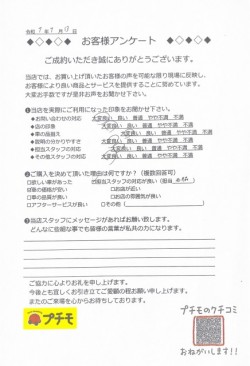 お客様アンケート
ご成約いただき誠にありがとうございます。
当店では、お買い上げ頂いたお客様の声を可能な限り現場に反映し、
お客様により良い商品とサービスを提供することに努めています。
大変お手数ですが是非お声をお聞かせ下さい。
❶当店を実際にご利用になった印象をお聞かせ下さい。
◆お問い合わせの対応 大変良い 良い 普通 やや不満 不満
◆店の印象 大変良い 良い 普通 やや不満 不満
◆車の品揃え 大変良い 良い 普通 やや不満 不満
◆説明の分かりやすさ 大変良い 良い 普通 やや不満 不満
◆担当スタッフの対応 大変良い 良い 普通 やや不満 不満
◆その他スタッフの対応 大変良い 良い 普通 やや不満 不満
❷ご購入を決めて頂いた理由は何ですか？（複数回答可）
□欲しい車があった
担当スタッフの対応が良い（担当
□価格が安い
□お店が近い
□車の品質が良い
□アフターサービスが良い
□その他（
❸当店スタッフにメッセージがあればお願い致します。
どんなに些細な事でも皆様の言葉が私共の力になります。
ご協力に心よりお礼を申し上げます。
今後とも宜しくお引き立てご愛顧の程お願い申し上げます。
またのご来場を心からお待ちしております。
プチモ
プチモのクチコミ
おねがいします!!